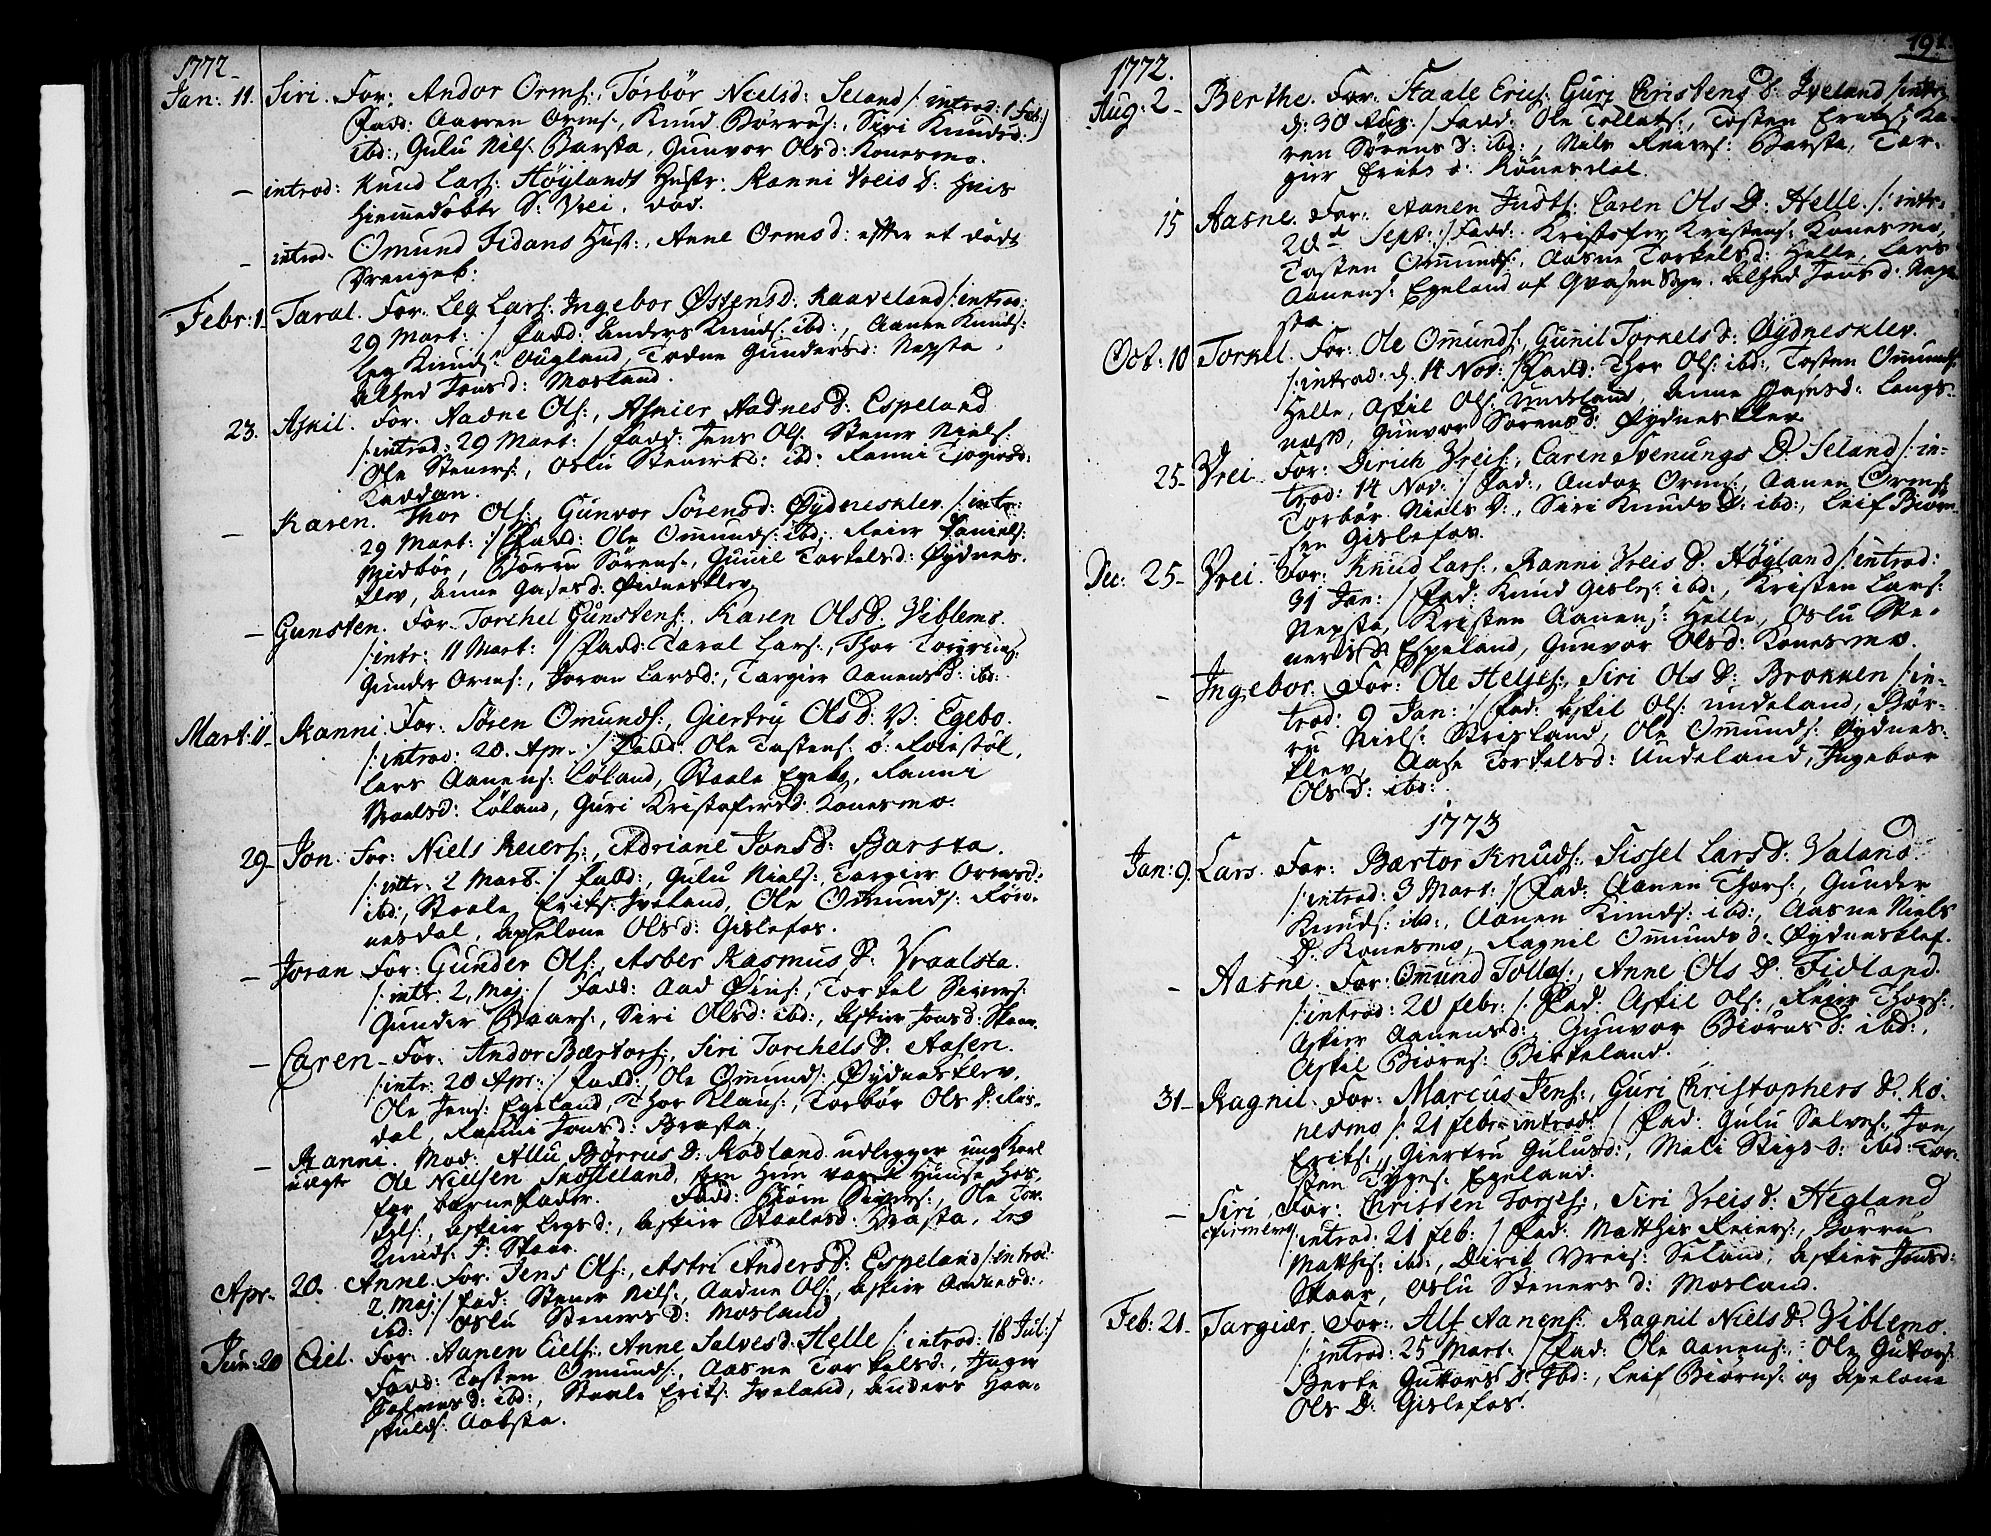 1772
Jan: 11. Siri. For: Andor Orms:, Torbör Nielsd: Seland /: introd: 1 Feb:/
Fadd: Aanen Orms:, Knud Börrus:, Siri Knudsd:
ibd:, Gulu Nils: Barsta, Gunvor Olsd: Konesmo.
- introd: Knud Lars: Höylands Hustr: Ranni Vreis D: hvis
Hiemedöbte S: Vrei, död.
- introd. Omund Fidans Hust:, Anne Ormsd: efter et död
Drengeb:
Febr: 1. Taral. For. Leg Lars: Ingebor Östensd: Kaaveland /: introd:
29 Mart: / Fadd: Anders Knuds: ibd:, Aanen Knuds:
Leg Knuds: Ougland, Todne Gundersd: Nepsta,
Alhed Jonsd: Mosland.
23. Askil. For. Aadne Ols:, Asnier Aadnesd: Espeland
/: introd: 29 Mart: / Fadd: Jens Ols: Stener Niels:
Ole Steners:, Oslu Stenersd: ibd: Ranni
Taddan.
- Karen. Thor Ols:, Gunvor Sörensd: Öydnesklev /: intr:
29 Mart: :/ Fadd: Ole Omunds: ibd:, Reier Daniels:
Midbör, Börru Sörens:, Gunil Torkelsd: Öydnes-
klev, Anne Gasesd: Öidnesklev
- Gunsten. For. Torchel Gunstens:, Karen Olsd: Viblemo.
/: intr: 11 Mart: / Fadd: Taral Lars:, Thor
Gunder Orms:, Joran Larsd:, Targier Aanensd: ibd:
Mart: 11. Ranni. For: Sören Omunds:, Giertru Olsd: V: Egebo.
/: introd: 20. Apr. :/ Fadd: Ole Tostens: ö: Roiestöl,
Lars Aanens: Löland, Staale Egebo, Ranni
Staalsd: Löland, Guri Kristofersd: Konesmo.
29. Jon. For: Niels Reiers:, Adriane Jonsd: Barsta.
/: intr: 2 Mart. :/ Fadd:, Gulu Niels:, Targier Ormsd:
ibd:, Staale Eriks: Iveland, Ole Omunds: Rön-
nesdal, Apelone Olsd: Gislefos.
- Joran For: Gunder Ols:, Asber Rasmus D: Vraalsta.
/: intr: 2, Maj: / Fadd: Aad Öins:, Torkel
Gunder Baars:, Siri Olsd: ibd:, Askier Jonsd: Skaar.
- Caren. For: Andor Bærtors:, Siri Torchels D: Aasen.
/: intr: 20 Apr: :/ Fadd:, Ole Omunds: Öydnesklev,
Ole Jens: Egeland, Thor Klaus:, Torbör Ols D:
dal, Ranni Jonsd: Brasta.
- Ranni. Mod: Allu Börrus D: Rodland udlegger ung Karl
uægte Ole Nielsen Snöteland,
for barnefader. Fadd: Biörn
kels:, Askier Legsd:, Askier Staalesd: Brasta, Leg
Knuds: S: Skaar.
Apr. 20. Anne. For. Jens Ols:, Astri Andersd: Espeland /: introd:
2 Maj: / Fad: Stener Nils:, Aadne Ols:, Askier Aadnesd:
ibd: / Oslu Stenersd: Mosland
Jun: 20 Eiel. For. Aanen Eiels:, Anne Salvesd: Helle /: introd: 18 Jul: /
Fadd: Tosten Omunds:, Aasne Torkelsd:, Inger
ibd:, Staale Eriks: Iveland, Anders Haa-
skulds: Aabsta.
191.
1772.
Aug: 2. Berthe. For. Staale Erics: Guri Christens D: Iveland /: intr:
d: 30 Aug: / Fadd: Ole Tollaks:, Tosten Eriks:, Ka-
ren Sörens D: ibd:, Niels Reiers: Barsta, Tar-
gier Eriks d: Rönnesdal.
15 Aasne. For: Aanen Judts:, Caren Ols D: Helle. /: intr:
20d Sept: / Fadd: Kristofer Kristens: Konesmo,
Tosten Omunds:, Aasne Torkelsd: Helle, Lars
Aanens: Egeland af Qvaasen Sogn. Alhed Jonsd: Nep-
sta.
Oct: 10 Torkel. For: Ole Omunds:, Gunil Torkels d: Öydnesklev.
/: introd. d. 14 Nov: / Fadd: Thor Ols: ibd:, Tosten Omunds:
Helle, Askil Ols: Undeland, Anne Gasesd: Langs-
næss, Gunvor Sörensd: Öydnesklev
25. Vrei For: Dirich Vreis:, Caren Svenungs D: Seland /: in-
trod: 14 Nov: / Fad:, Andor Orms:, Aanen Orms:
Torbör Niels D:, Siri Knuds D: ibd:, Leif Biörn-
sen Gislefos.
Dec: 25. Vrei. For: Knud Lars:, Ranni Vreis D: Högland /: introd:
31 Jan: / Fad: Knud Gisles: ibd:, Kristen Lars:
Nepsta, Kristen Aanens: Helle, Oslu Ste-
ners D: Espeland, Gunvor Olsd: Konesmo.
- Ingebor. For: Ole Heljes:, Siri Ols D: Brokken /: in-
trod: 9 Jan: / Fad: Askil Ols: Undeland, Bör-
ru Niels: Birkeland, Ole Omunds: Öydnes-
klev, Aase Torkelsd: Undeland, Ingebor
Olsd: ibd:
1773
Jan: 9. Lars. For: Bærtor Knuds:, Sissel Larsd: Valand.
/: introd: 3 Mart: / Fad: Aanen Thors:, Gunder
Knuds: ibd:, Aanen Knuds: ibd:, Aasne Niels
D: Konesmo, Ragnil Omundsd: Öydnesklef.
- Aasne. For: Omund Tolles:, Anne Ols D: Fidland.
/: introd: 20 febr: / Fad: Askil Ols:, Reier Thors:,
Askier Aanensd:, Gunvor Biörns D: ibd:,
Askil Biörns: Birkeland.
31. Ragnil. For: Marcus Jens:, Guri Christophers D. Ko-
nesmo /: 21 febr: introd: / Fad: Gulu Salves:, Jon
Eriks:, Giertru Gulusd:, Mali Stigsd: ibd: Tor-
sten Tyges: Egeland.
- Siri, For: Christen Torjes:, Siri Vreisd: Hegland
/: introd: 21 feb: / Fad: Matthis Reiers:, Borru
Matthis: ibd:, Dirik Vreis: Seland, Askier Jonsd:
Skaar, Oslu Steners d: Mosland.
Feb: 21. Targiær. For: Alf Aanens:, Ragnil Niels D: Viblemo.
/: introd: 25 Mart: / Fad: Ole Aanens:, Ole Guttors:
Berte Guttors D: Ibd:, Leif Biörns: og Apelone
Ols D: Gislefos.